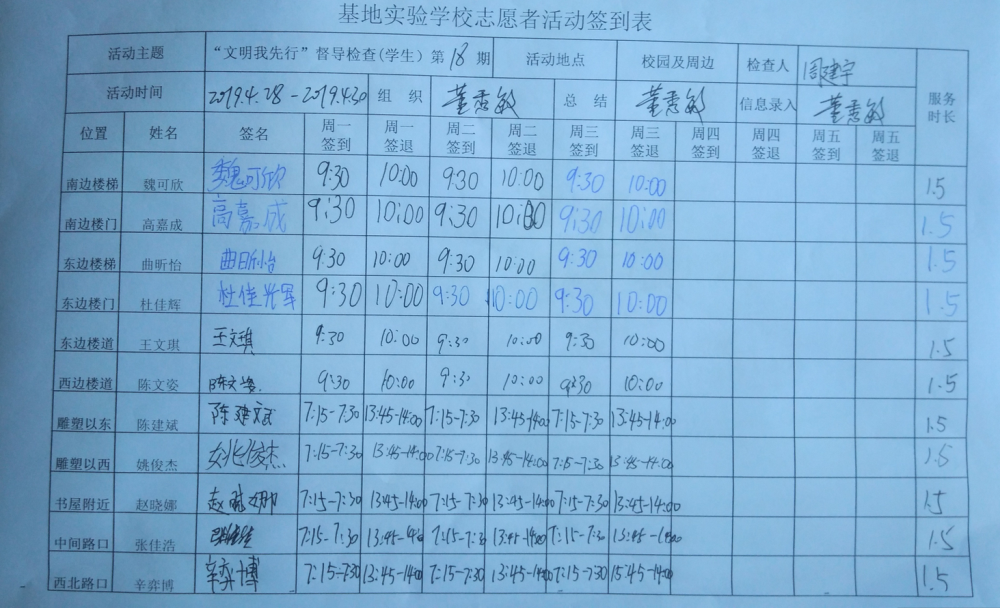 基地实验学校志愿者活动签到表
活动主题 “文明我先行”督导检查(学生)第18期 活动地点 校园及周边 检查人 周建宇 服务时长
活动时间 2019.4.28-2019.4.30 组织 董秀敏 总结 董秀敏 信息录入 董秀敏
位置 姓名 签名 周一签到 周一签退 周二签到 周二签退 周三签到 周三签退 周四签到 周四签退 周五签到 周五签退
南边楼梯 魏可欣 魏可欣 9:30 10:00 9:30 10:00 9:30 10:00 1.5
南边楼门 高嘉成 高嘉成 9:30 10:00 9:30 10:00 9:30 10:00 1.5
东边楼梯 曲昕怡 曲昕怡 9:30 10:00 9:30 10:00 9:30 10:00 1.5
东边楼门 杜佳辉 杜佳辉 9:30 10:00 9:30 10:00 9:30 10:00 1.5
东边楼道 王文琪 王文琪 9:30 10:00 9:30 10:00 9:30 10:00 1.5
西边楼道 陈文姿 陈文姿 9:30 10:00 9:30 10:00 9:30 10:00 1.5
雕塑以东 陈建斌 陈建斌 7:15-7:30 13:45-14:00 7:15-7:30 13:45-14:00 7:15-7:30 13:45-14:00 1.5
雕塑以西 姚俊杰 姚俊杰 7:15-7:30 13:45-14:00 7:15-7:30 13:45-14:00 7:15-7:30 13:45-14:00 1.5
书屋附近 赵晓娜 赵晓娜 7:15-7:30 13:45-14:00 7:15-7:30 13:45-14:00 7:15-7:30 13:45-14:00 1.5
中间路口 张佳浩 7:15-7:30 13:45-14:00 7:15-7:30 13:45-14:00 7:15-7:30 13:45-14:00 1.5
西北路口 辛弈博 辛弈博 7:15-7:30 13:45-14:00 7:15-7:30 13:45-14:00 7:15-7:30 15:45-14:00 1.5